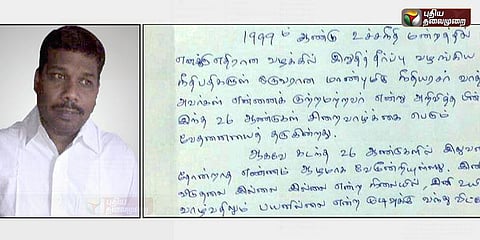 புதிய
தலைமுறை
1999 ம் ஆண்டு உச்சநீதி மன்றத்தில்
எனக்கு எதிரான வழக்கில் இறுதித்தீர்ப்பு வழங்கிய
நீதிபதிகளுள் ஒருவரான மாண்புமிகு நீதியரசர் வாத்
அவர்கள் என்னைக் குற்றமற்றவர் என்று அறிவித்த பின்
இந்த 26 ஆண்டுகள் சிறைவாழ்க்கை பெரும்
வேதனையைத் தருகின்றது.
ஆகவே கடந்த 26 ஆண்டுகளில் இதுவரை
தோன்றாத எண்ணம் ஆழமாக வேரூன்றியுள்ளது. இனி
விடுதலை இல்லை இல்லை என்ற நிலையில், இனி உயிர்
வாழ்வதிலும் பயனில்லை என்ற முடிவுக்கு வந்து விட்டே